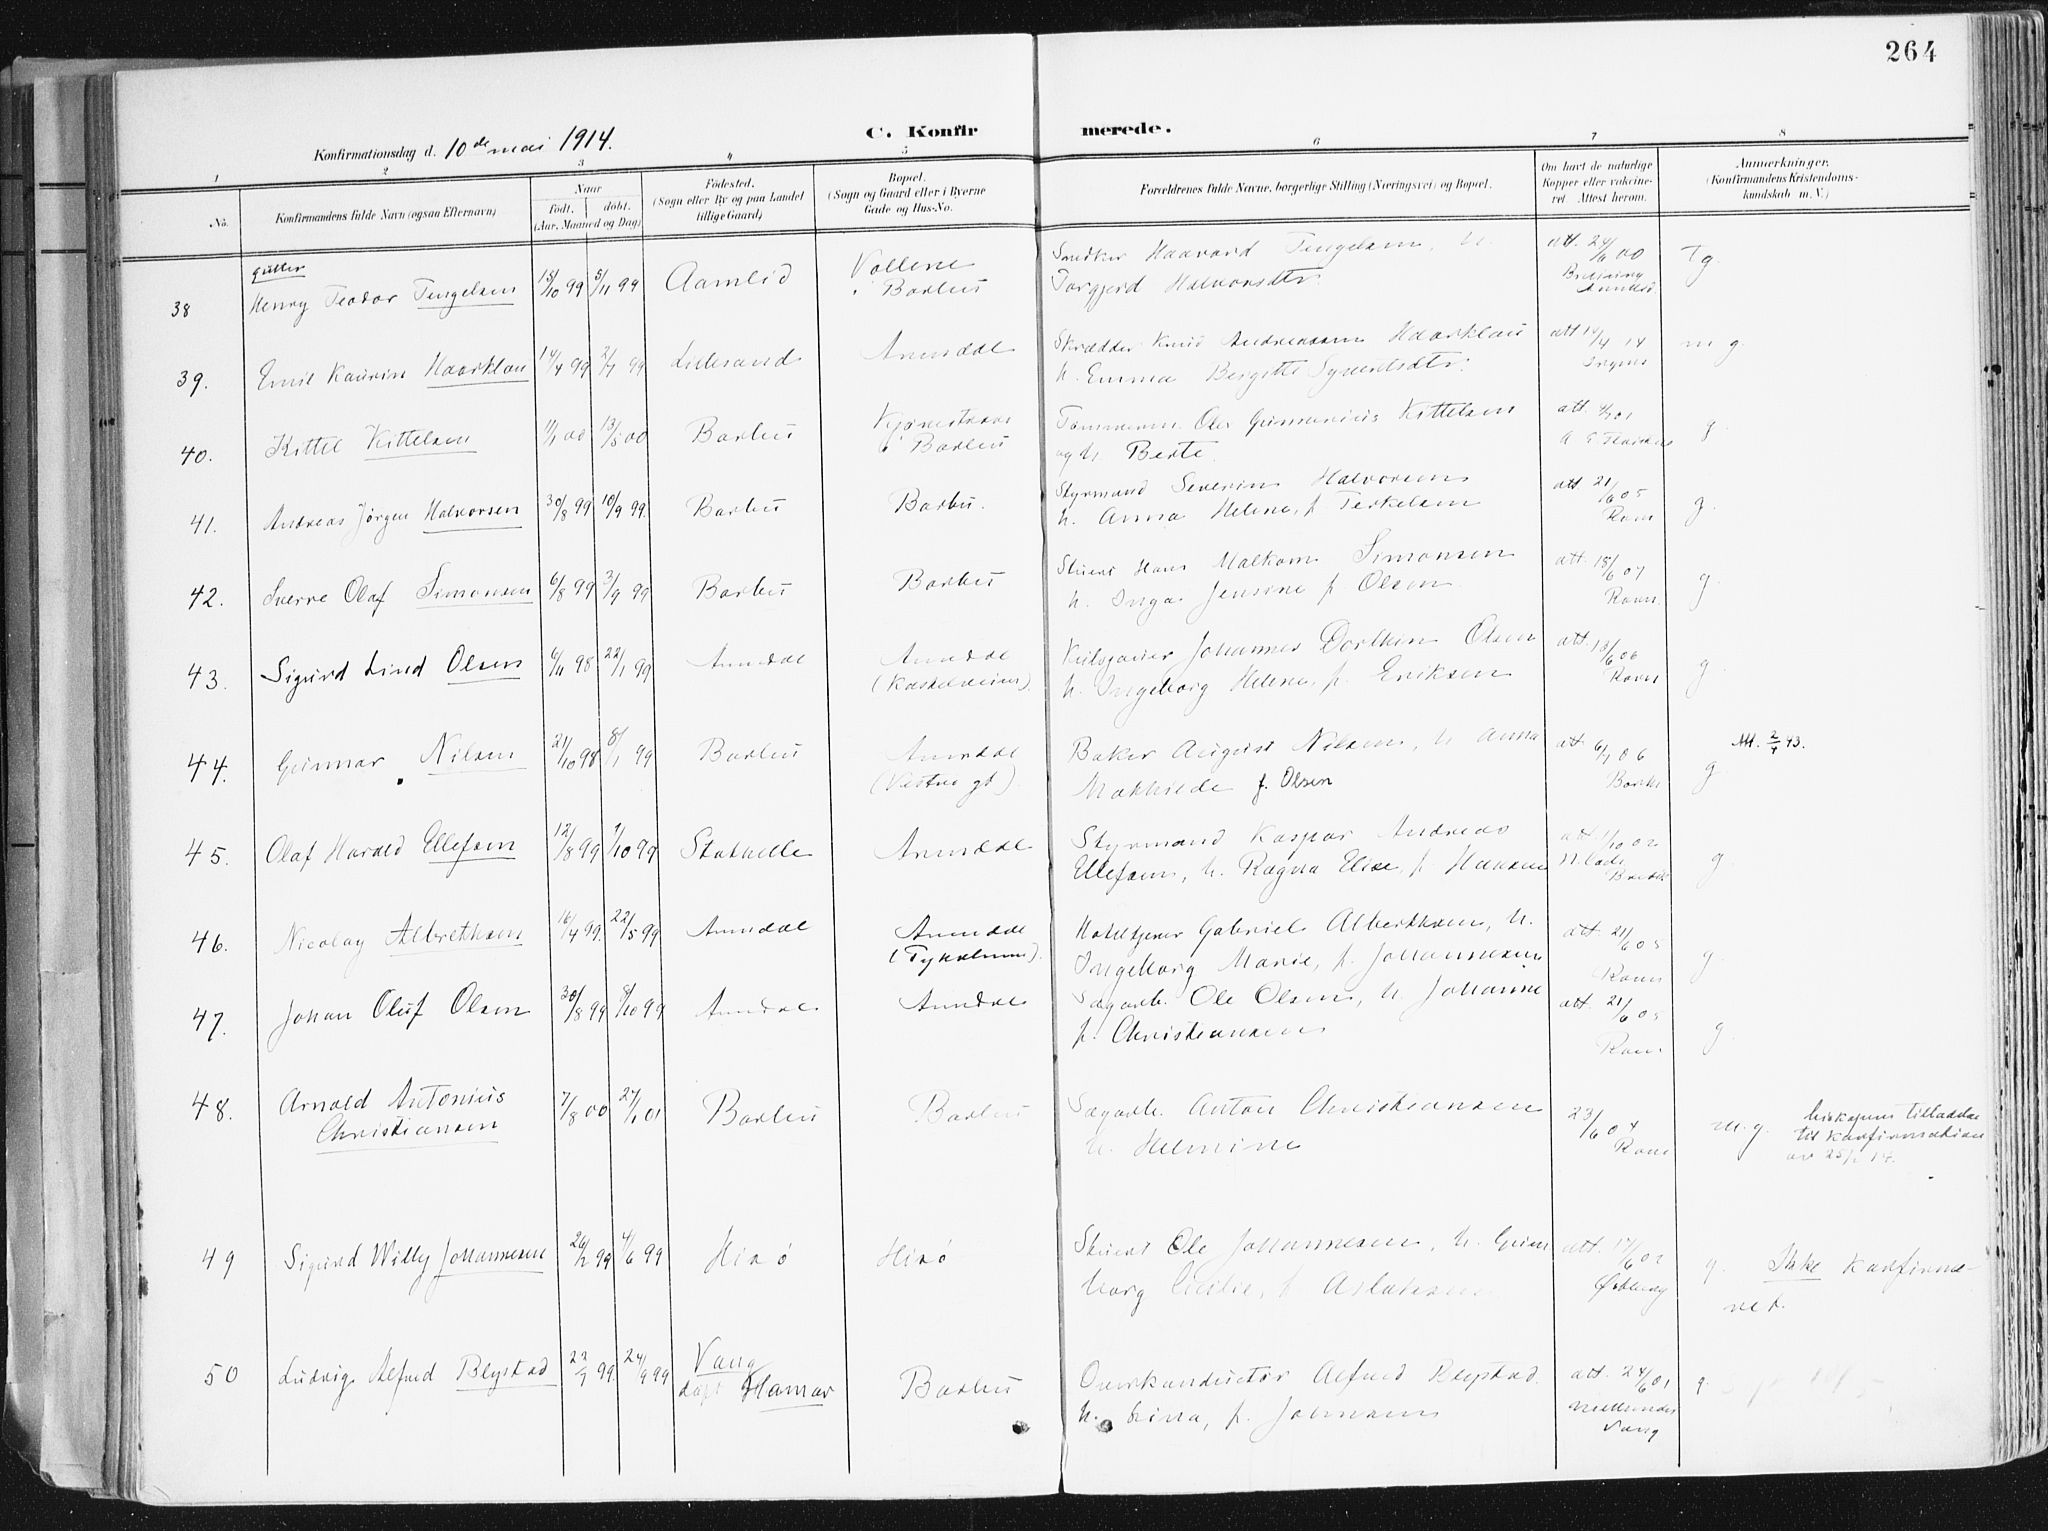 264
C. Konfirmerede.
Konfirmationsdag d. 10de mai 1914.
1 2 3 4 5 6 7 8
No.
Konfirmandens fulde Navn (ogsaa Efternavn)
Naar
Født. døbt.
(Aar, Maaned og Dag)
Fødested.
(Sogn eller By og paa Landet
tillige Gaard)
Bopæl.
(Sogn og Gaard eller i Byerne
Gade og Hus-No.
Forældrenes fulde Navne, borgerlige Stilling (Næringsvei) og Bopæl.
Om havt de naturlige
Kopper eller vakcine-
ret. Attest herom.
Anmerkninger.
(Konfirmandens Kristendoms-
kundskab m. V.)
gutter
38 Henry Teodor Tengelsen 15/10 99 5/11 99 Aamlid Vollene
i Barbu
Snedker Haavard Tengelsen, h.
Torgjerd Halvorsdtr. att. 24/6 00 Tg.
39. Emil Kaurin Haarklau 14/4 99 2/7 99 Lillesand Arendal
Skrædder Knud Andreassen Haarklau
h. Emma Birgitte Syvertsdtr. att 14/4 14 m g.
40. Kittel Kittelsen 11/1 00 13/5 00 Barbu
i Barbu
Tømmerm. Olav Gunnarius Kittelsen
og h. Berte. att. g.
41. Andreas Jørgen Halvorsen 30/8 99 10/9 99. Barbu Barbu.
Styrmand Severin Halvorsen
h. Anna Helene, f. Terkelsen att. 21/6 05
Ravn g.
42. Sverre Olaf Simonsen 6/8 99 3/9 99 Barbu Barbu
Stuert Hans Malkom Simonsen
h. Inga Jensine f. Olsen att. 18/6 07
Ravn. g.
43. Sigurd Lind Olsen 6/11 98 22/1 99 Arendal Arendal
(Kastelveien)
Johannes Dorthin Olsen
h. Ingeborg Helene, f. Eriksen att. 13/6 06
Ravn g
44. Gunnar Nilsen 21/10 98 8/1 99 Barbu Arendal
(Vestre gt)
Baker August Nilsen, h. Anna
Mathilde f. Olsen att. 6/7 06 g. Att. 2/4 43.
45. Olaf Harald Ellefsen 12/8 99 1/10 99 Stathelle Arendal
Styrmand Kaspar Andreas
Ellefsen, h. Ragna Elise, f. Hansen att 1/10 02
Brevik g
46. Nicolay Albrethsen 16/4 99. 22/5 99 Arendal Arendal
(Tyholmen).
Hoteltjener Gabriel Alberthsen, h.
Ingeborg Marie, f. Johannesen att. 21/6 05
Ravn g.
47. Johan Oluf Olsen 30/8 99 8/10 99 Arendal Arendal
Sagarb. Ole Olsen, h. Johanne
f. Christiansen att. 21/6 05
Ravn g
48. Arnold Antonius
Christiansen 7/8 00 27/1 01 Barbu Barbu
Sagarb. Anton Christiansen
h. Helmine 23/6 04
Ravn m.g. biskopens tilladelse
til konfirmation
av 25/2 14.
49 Sigurd Willy Johannesen 26/2 99 4/6 99 Hisø Hisø
Stuert Ole Johannesen, h. Guun
borg Cicilie, f. Aslaksen att. 17/6 02 g. Ikke konfirme-
ret.
50 Ludvig Alfred Blystad 22/7 99. 24/9 99 Vang
døpt Hamar Barbu
Overkonduktør Alfred Blystad.
h. Lina, f. Johnsen att. 24/6 01
Vang g.